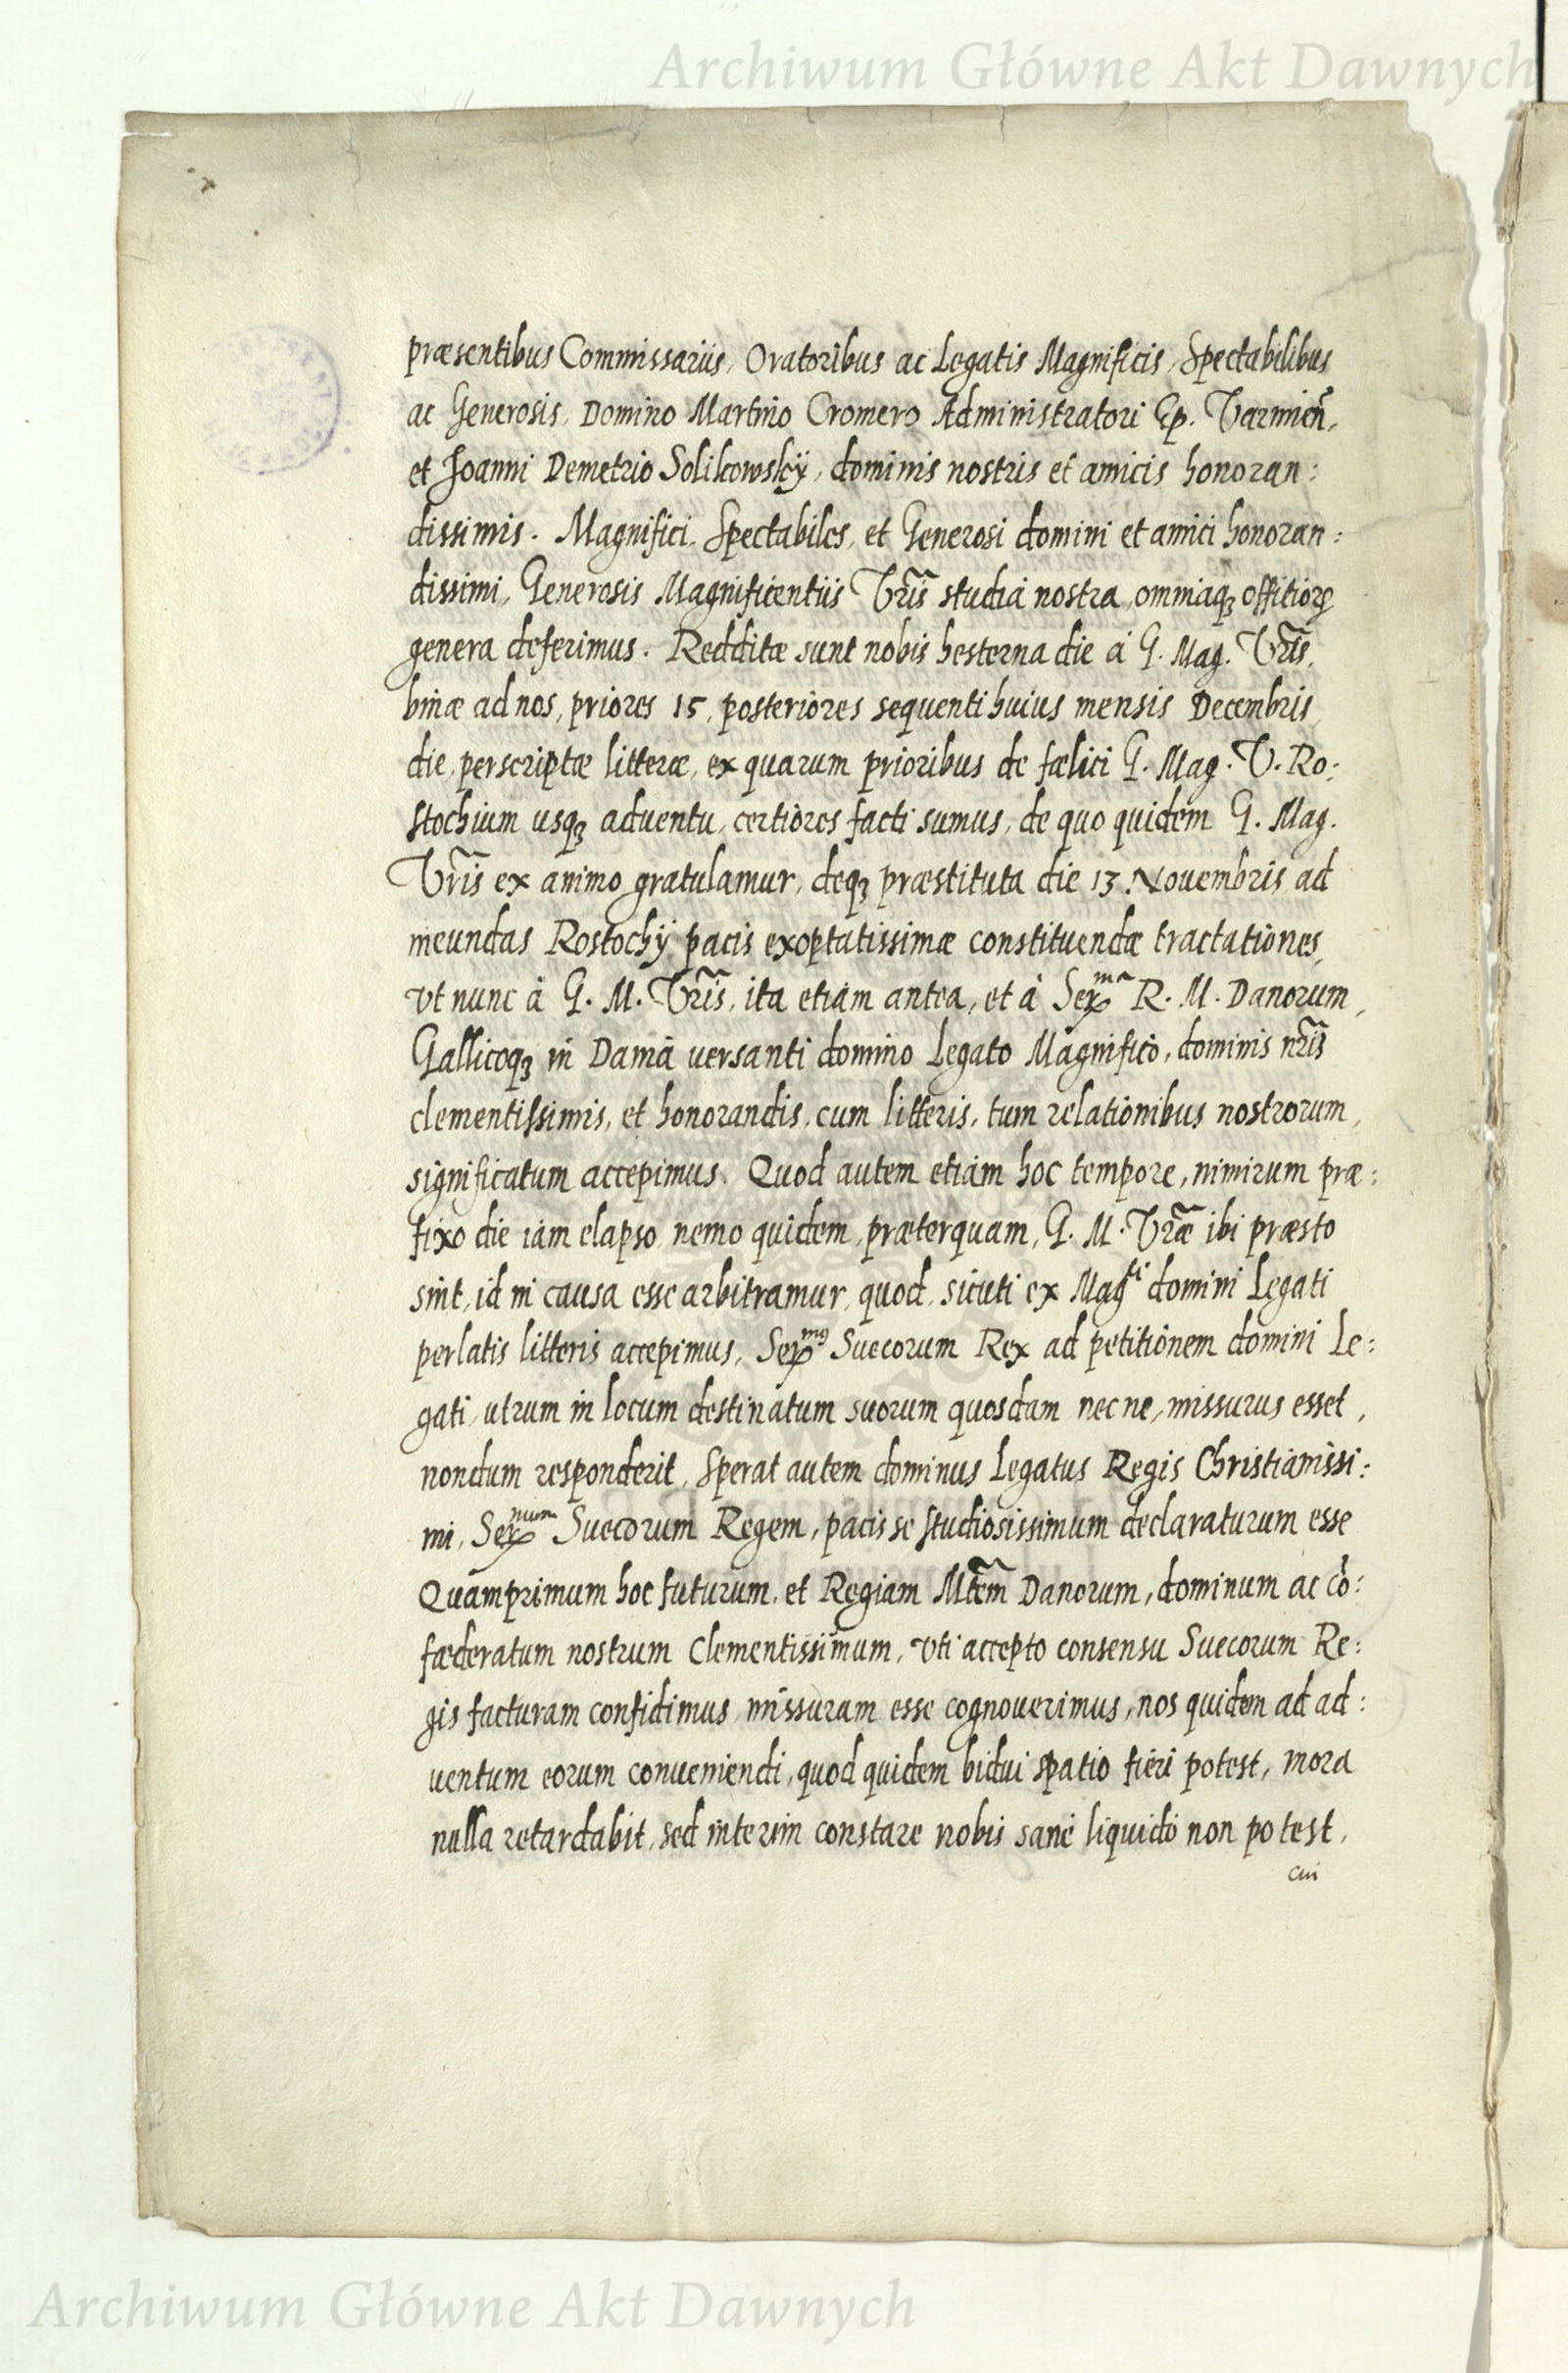 Archiwum Główne Akt Dawnych
præsentibus Commissariis, Oratoribus ac Legatis Magnificis, Spectabilibus
ac Generosis, Domino Martino Cromero Administratori Ep. Varmien̄,
et Joanni Demetrio Solikowsky, dominis nostris et amicis honoran:
dissimis. Magnifici, Spectabiles, et Generosi domini et amici honoran:
dissimi, Generosis Magnificentiis Vr̃is studia nostra, omniaqꝫ offitioꝝ
genera deferimus. Redditæ sunt nobis hesterna die à G. Mag. Vr̃is,
binæ ad nos, priores 15, posteriores sequenti huius mensis Decembris,
die, perscriptæ litteræ, ex quarum prioribus de fælici G. Mag. V. Ro:
stochium usqꝫ adventu, certiores facti sumus, de quo quidem G. Mag.
Vr̃is ex animo gratulamur, deqꝫ præstituta die 13 Nouembris ad
ineundas Rostochÿ pacis exoptatissimæ constituendæ tractationes,
vt nunc à G. M. Vr̃is, ita etiam antea, et à Serᵐᵃ R. M. Danorum,
Gallicoqꝫ in Dania uersanti domino Legato Magnifico, dominis nr̃is
clementissimis, et honorandis, cum litteris, tum relationibus nostrorum,
significatum accepimus. Quod autem etiam hoc tempore, nimirum præ:
fixo die iam elapso, nemo quidem, præterquam, G. M. Vr̃æ ibi præsto
sint, id in causa esse arbitramur, quod, sicuti ex Magᶜⁱ domini Legati
perlatis litteris accepimus, Serᵐᵘˢ Suecorum Rex ad petitionem domini Le:
gati, utrum in locum destinatum suorum quosdam nec ne, missurus esset,
nondum responderit, Sperat autem dominus Legatus Regis Christianissi:
mi, Serⁿᵘᵐ Suecorum Regem, pacis se studiosissimum declaraturum esse
Quamprimum hoc futurum, et Regiam Mt̃em Danorum, dominum ac cō:
fæderatum nostrum Clementissimum, vti accepto consensu Suecorum Re:
gis facturam confidimus, missuram esse cognouerimus, nos quidem ad ad:
uentum eorum conueniendi, quod quidem bidui spatio fieri potest, mora
nulla retardabit, sed interim constare nobis sanè liquidò non potest,
cui
Archiwum Główne Akt Dawnych